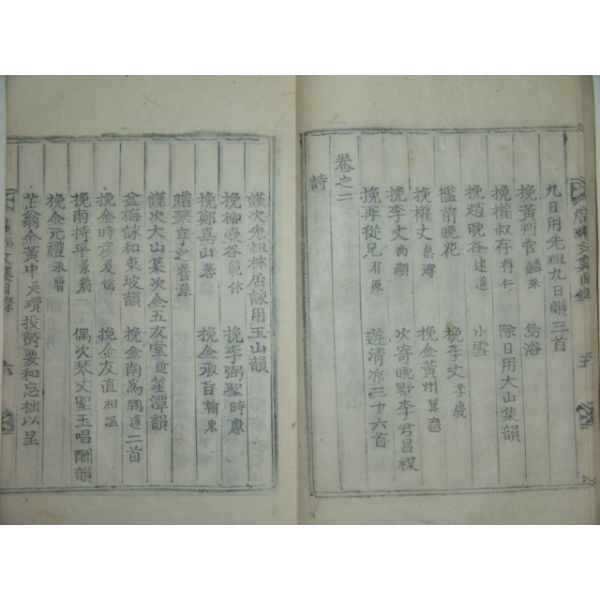 九日用先祖九日韻三首
挽黃判官麟來 烏浴
挽權叔存得仁 除日用大山集韻
挽趙晚谷述道 小雪
檻前晚花 挽李丈孝慶
挽權丈思溥 挽金黃州箕應
挽李丈尚顯 次寄晚野李君昌
挽再從兄有源 遊清凉三十六首
卷之二
詩
謹次先祖林居詠用玉山韻
挽柳壺谷範休 挽李弼聖時
挽鄭嘉山耆 挽金承旨翰東
贈琴亨之養蒙
謹次大山集次金五友堂近崔潭韻
盆梅詠和東坡韻 挽金南爲鵬運二首
挽金時彦 挽金友直相溫
挽南持平景 二 偶次琴丈聖玉唱酬韻
挽金元禮永 
芷翁金黃中是瓚投詩要和忘拙以呈
文集目錄
五
文集目錄
六